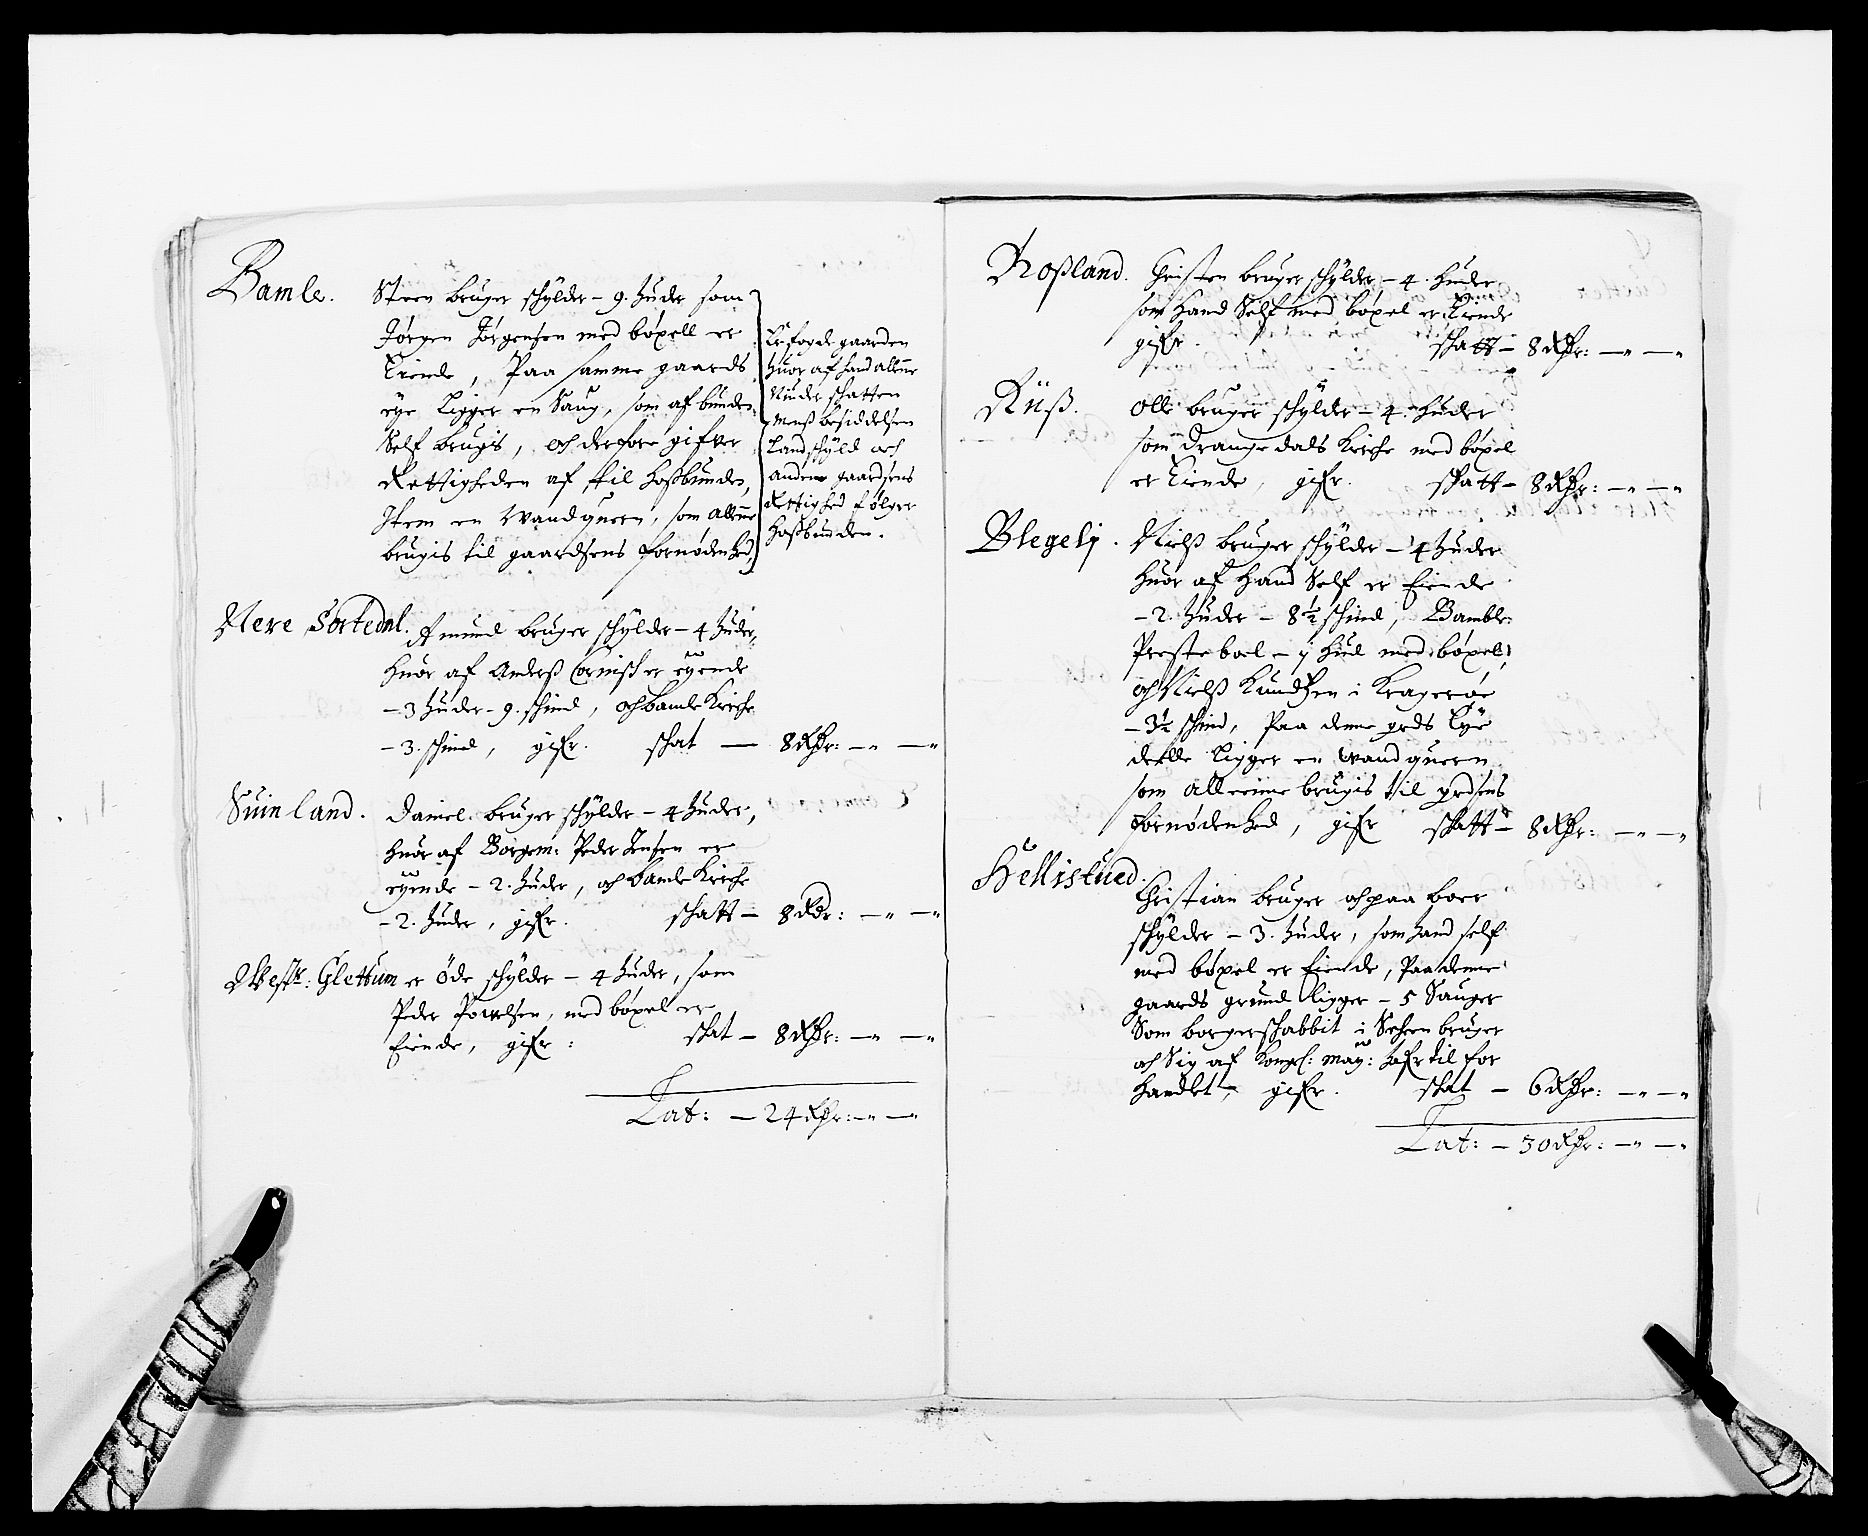 Bamle. Steen bruger schylder – 9. Huder som
Jørgen Jørgensen med bøxell er
Eiende, Paa samme gaards
eye ligger en Saug, som af bunden
Self brugis, och derfore gifver
Rettigheden af til hosbunden,
Item en Wandquern, som alleene
brugis til gaardsens fornødenhed,
Er fogdegaarden
huor af hand alleene
Niuder schatten
mens besiddelsen
Landschyld och
anden gaardsens
Rettighed følger
Hosbunden.
Nere Sortedal. Amund bruger schylder – 4 Huder,
huor af Anders Cornisch er eyende
– 3 Huder – 9. schind, och bamle Kirche
– 3. schind, gifr. schat — 8 Rdr: —„ —„
Suinland. Daniel bruger schylder – 4 Huder,
huor af Borgem: Peder Jensen er
eyende – 2. Huder, och Bamle Kirche
– 2. Huder, gifr. schatt – 8 Rdr: —„ —„
Westr: Glettum er øde schylder – 4 Huder, som
Peder Povelsen, med bøxel er
Eiende, gifr: schat – 8 Rdr: —„ —„
Lat: – 24 Rdr: —„ —„
Roßland. Christen bruger schylder – 4. Huder
som Hand Self med bøxel er Eiende
gifr. schatt – 8 Rdr: —„ —„
Rüß. Olle bruger schylder – 4. Huder
som Drangedals Kirche med bøxel
er Eiende, gifr. schatt – 8 Rdr: —„ —„
Blegelj. Nielß bruger schylder – 4 Huder
huor af Hand Self er Eiende
– 2. Huder – 8½ schind, Bamble
Presteboel – j Hud med bøxel,
och Nielß Knudsen i Kragerøe
– 3½ schind, Paa denne grds Eye
deelle ligger en Wandquern
som alleene brugis til grdsens
fornødenhed, gifr schatt – 8 Rdr: —„ —„
Hellistued. Christian bruger och paa boer
schylder – 3. Huder, som hand self
med bøxel er Eiende, Paa denne
gaards grund ligger – 5 Sauger
Som borgerschabbit i Scheen bruger
och Sig af Kongl: May: hafr til for
handlet, gifr. schat – 6 Rdr: —„ —„
Lat: – 30 Rdr: —„ —„